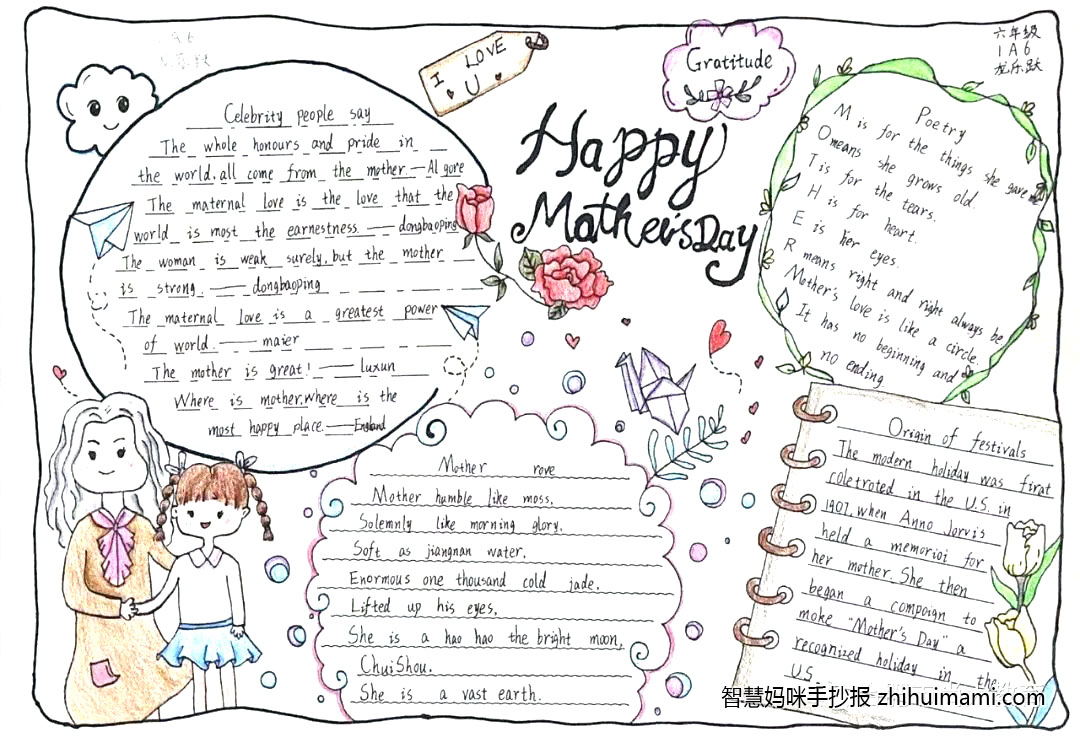 六年级
1A6
龙乐跃
I LOVE
U
Gratitude
Happy
Mother'sDay
Celebrity people say
The whole honours and pride in
the world.all come from the mother.—Al gore
The maternal love is the love that the
world is most the earnestness.——dongbaoping
The woman is weak surely,but the mother
is strong.——dongbaoping
The maternal love is a greatest power
of world.——maier
The mother is great!——luxun
Where is mother.where is the
most happy place.——England
Poetry
M is for the things she gave m
O means she grows old.
T is for the tears.
H is for heart.
E is her eyes.
R means right and right always be
Mother's love is like a circle.
It has no beginning and
no ending.
Mother rove
Mother humble like moss.
Solemnly like morning glory.
Soft as jiangnan water.
Enormous one thousand cold jade.
Lifted up his eyes,
She is a hao hao the bright moon,
ChuiShou.
She is a vast earth.
Origin of festivals
The modern holiday was first
coletroted in the U.S. in
1907.when Anno Jorvis
held a memorioi for
her mother.She then
began a compoign to
moke "Mother's Day" a
recognized holiday in the
U.S.
智慧妈咪手抄报 zhihuimami.com